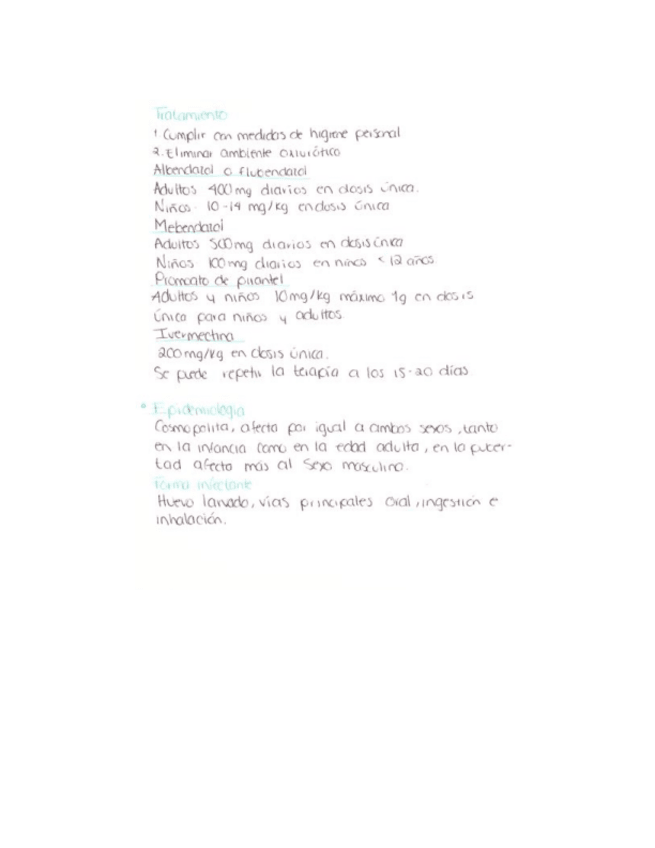 Tratamiento
1 Cumplir con medidas de higiene personal
2. Eliminar ambiente oxiurótico
Albendazol o flubendazol
Adultos 400mg diarios en dosis única.
Niños 10-14 mg/kg en dosis única
Mebendazol
Adultos 500mg diarios en dosis única
Niños 100mg diarios en niños <12 años
Piomoato de pirantel
Adultos y niños 10mg/kg máximo 1g en dosis
única para niños y adultos
Ivermectina
200mg/kg en dosis única.
Se puede repetir la terapia a los 15-20 días
• Epidemiologia
Cosmopolita, afecta por igual a ambos sexos, tanto
en la infancia como en la edad adulta, en la puber-
tad afecta más al sexo masculino.
Forma infectante
Huevo larvado, vías principales oral, ingestión e
inhalación.